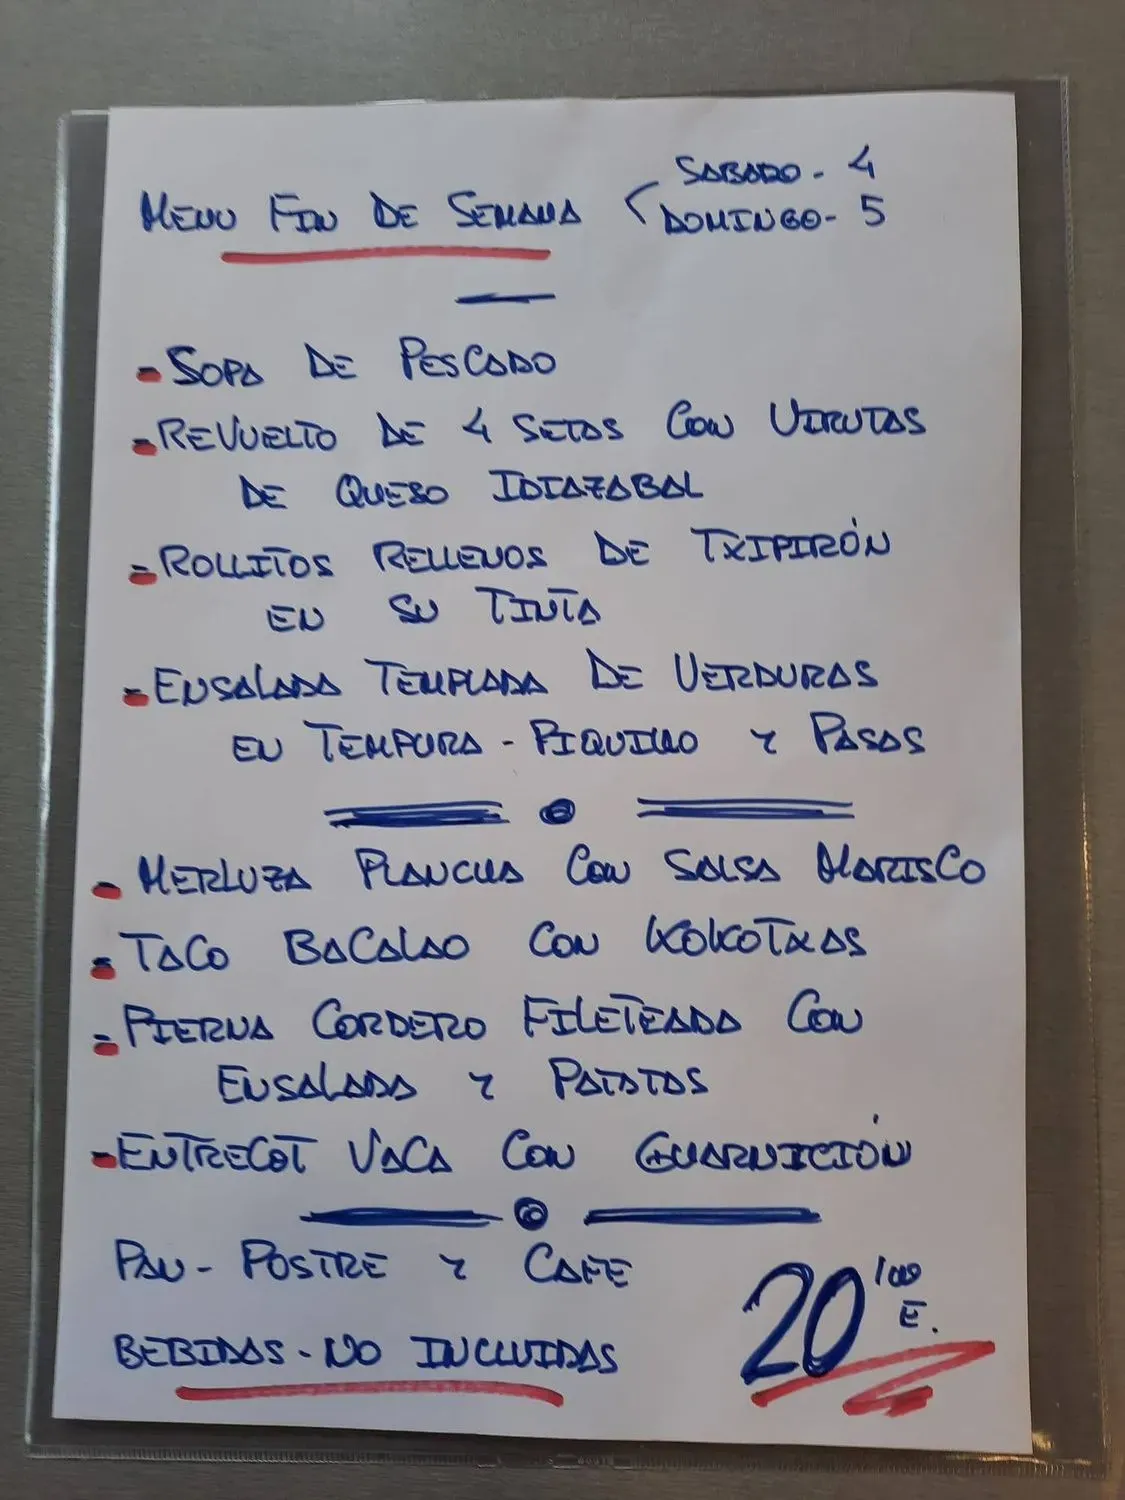 MENU FIN DE SEMANA
SABADO - 4
DOMINGO - 5
- SOPA DE PESCADO
- REVUELTO DE 4 SETAS CON VIRUTAS
DE QUESO IDIAZABAL
- ROLLITOS RELLENOS DE TXIPIRÓN
EN SU TINTA
- ENSALADA TEMPLADA DE VERDURAS
EN TEMPURA - PIQUILLO Y PASAS
- MERLUZA PLANCHA CON SALSA MARISCO
- TACO BACALAO CON KOKOTXAS
- PIERNA CORDERO FILETEADA CON
ENSALADA Y PATATAS
- ENTRECOT VACA CON GUARNICIÓN
PAN - POSTRE Y CAFE
BEBIDAS - NO INCLUIDAS
20'00 E.